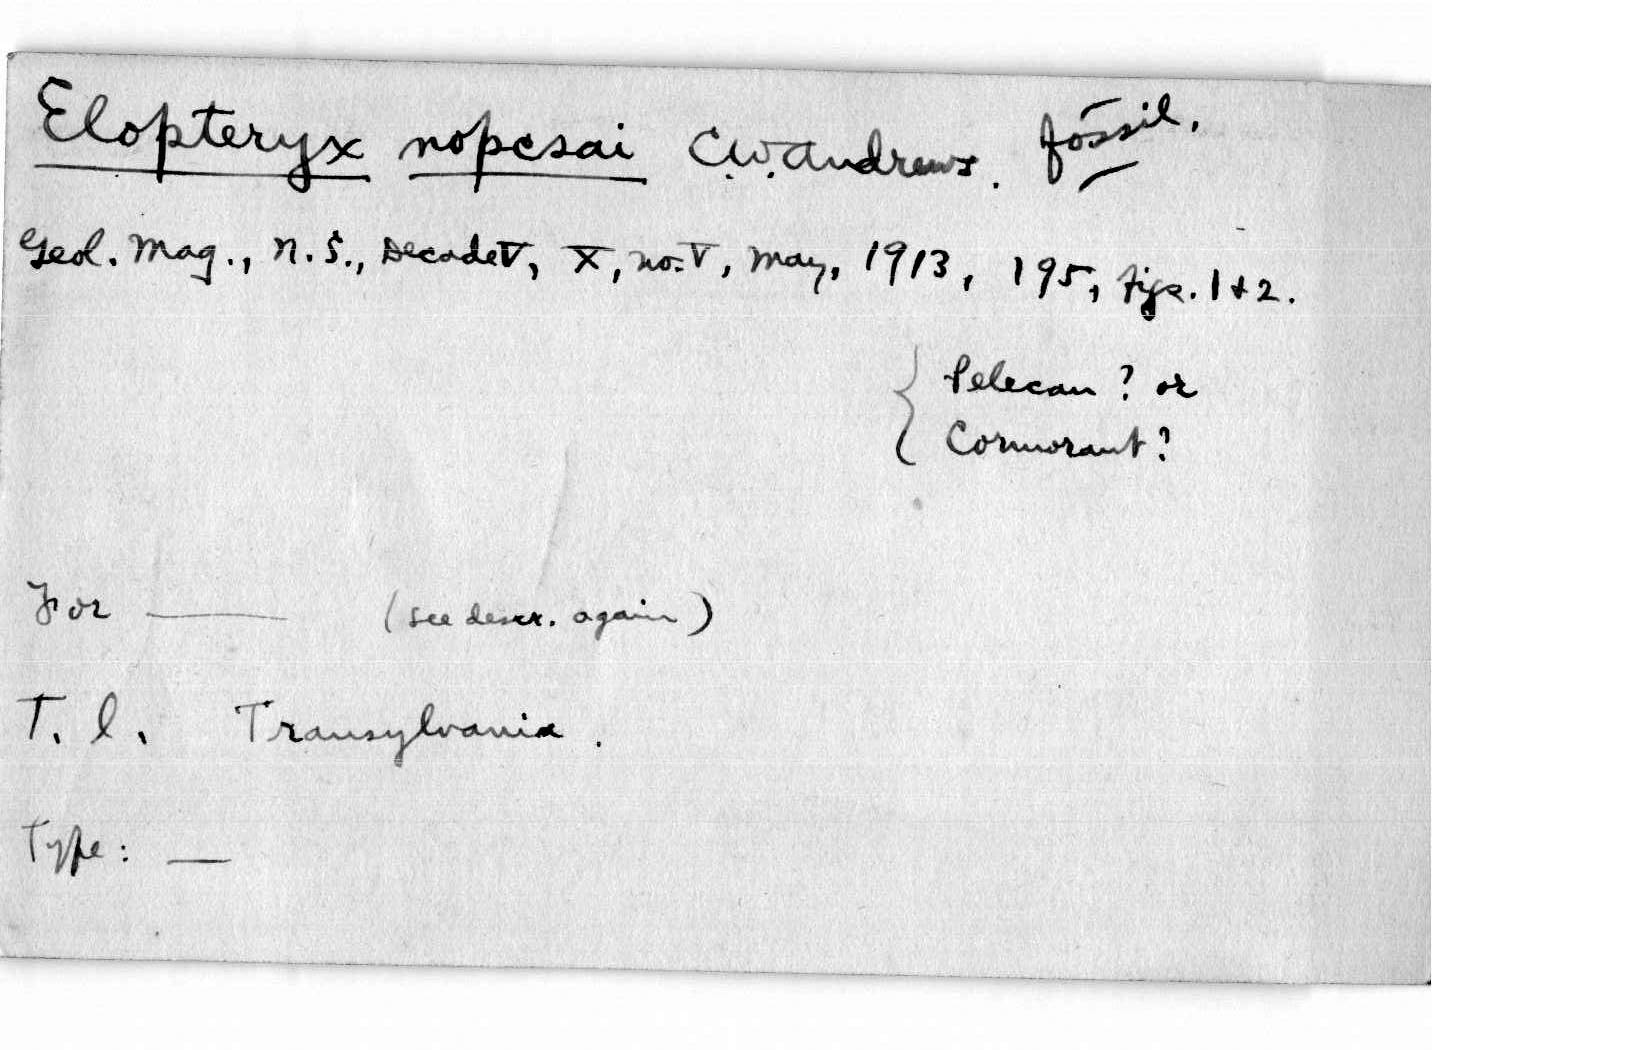 Elopteryx nopcsai C.W. Andrews. fossil.
Geol. Mag., N.S., Decade V, X, no. V, May, 1913, 195, figs. 1 & 2.
Pelecan? or
Cormorant?
For ——— (see descr. again)
T. l. Transylvania.
Type: —